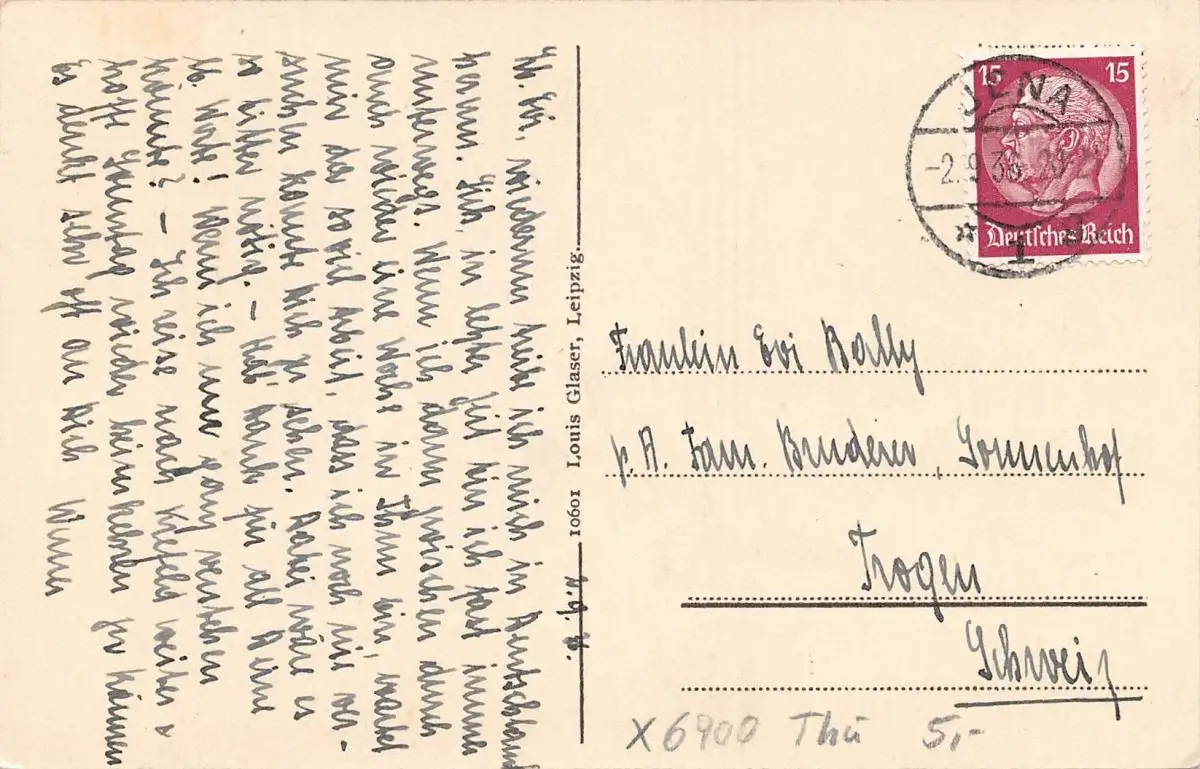 Lb. Evi, wiederum treibe ich mich in Deutschland
herum. Ich, in letzter Zeit bin ich fast immer
unterwegs. Wenn ich dann zwischen durch
auch wieder eine Woche in Thun bin, wartet
mir da so viel Arbeit, dass ich noch nie ver-
suchen konnte Dich zu sehen. Dabei wäre es
so bitter nötig. – Hab' Dank für all Deine
lb. Worte! Wenn ich nur ganz verstehen
könnte? – Ich reise nach Krefeld weiter &
hoffe Sonntag wieder heimkehren zu können
Es denkt sehr oft an Dich
Werner
10601 Louis Glaser, Leipzig.
15 15
Deutsches Reich
JENA
-2.9.38
* 1
Fräulein Evi Bally
p. A. Fam. Bruderer, Sonnenhof
Trogen
Schweiz
X 6900 Thü 5,-